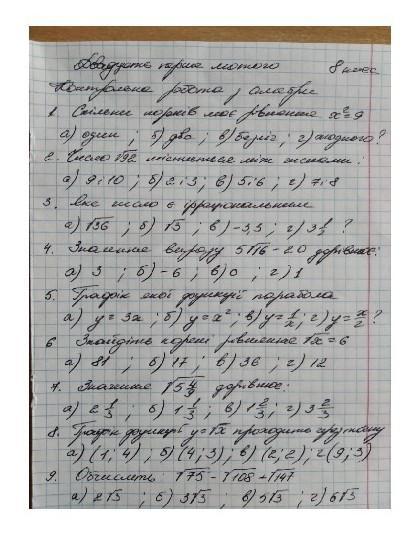 Двадцять перше лютого 8 клас
Контрольна робота з алгебри
1. Скільки коренів має рівняння x²=9
а) один ; б) два ; в) безліч ; г) жодного?
2. Число √92 міститься між числами:
а) 9 і 10 ; б) 2 і 3 ; в) 5 і 6 ; г) 7 і 8
3. Яке число є ірраціональним
а) √36 ; б) √5 ; в) -3,3 ; г) 3 ?
4. Значення виразу 5√16 - 20 дорівнює:
а) 3 ; б) -6 ; в) 0 ; г) 1
5. Графік якої функції парабола
а) y = 3x ; б) y = x² ; в) y = 1/x ; г) y = x/2 ?
6 Знайдіть корені рівняння √x = 6
а) 81 ; б) 17 ; в) 36 ; г) 12
7. Значення √5 4/9 дорівнює:
а) 2 1/3 ; б) 1 1/3 ; в) 1 2/3 ; г) 3 2/3
8. Графік функції y=√x проходить через точку
а) (1; 4) ; б) (4; 3) ; в) (2; 2) ; г (9; 3)
9. Обчисліть: √75 - √108 + √147
а) 2√3 ; б) 3√3 ; в) 5√3 ; г) 6√3